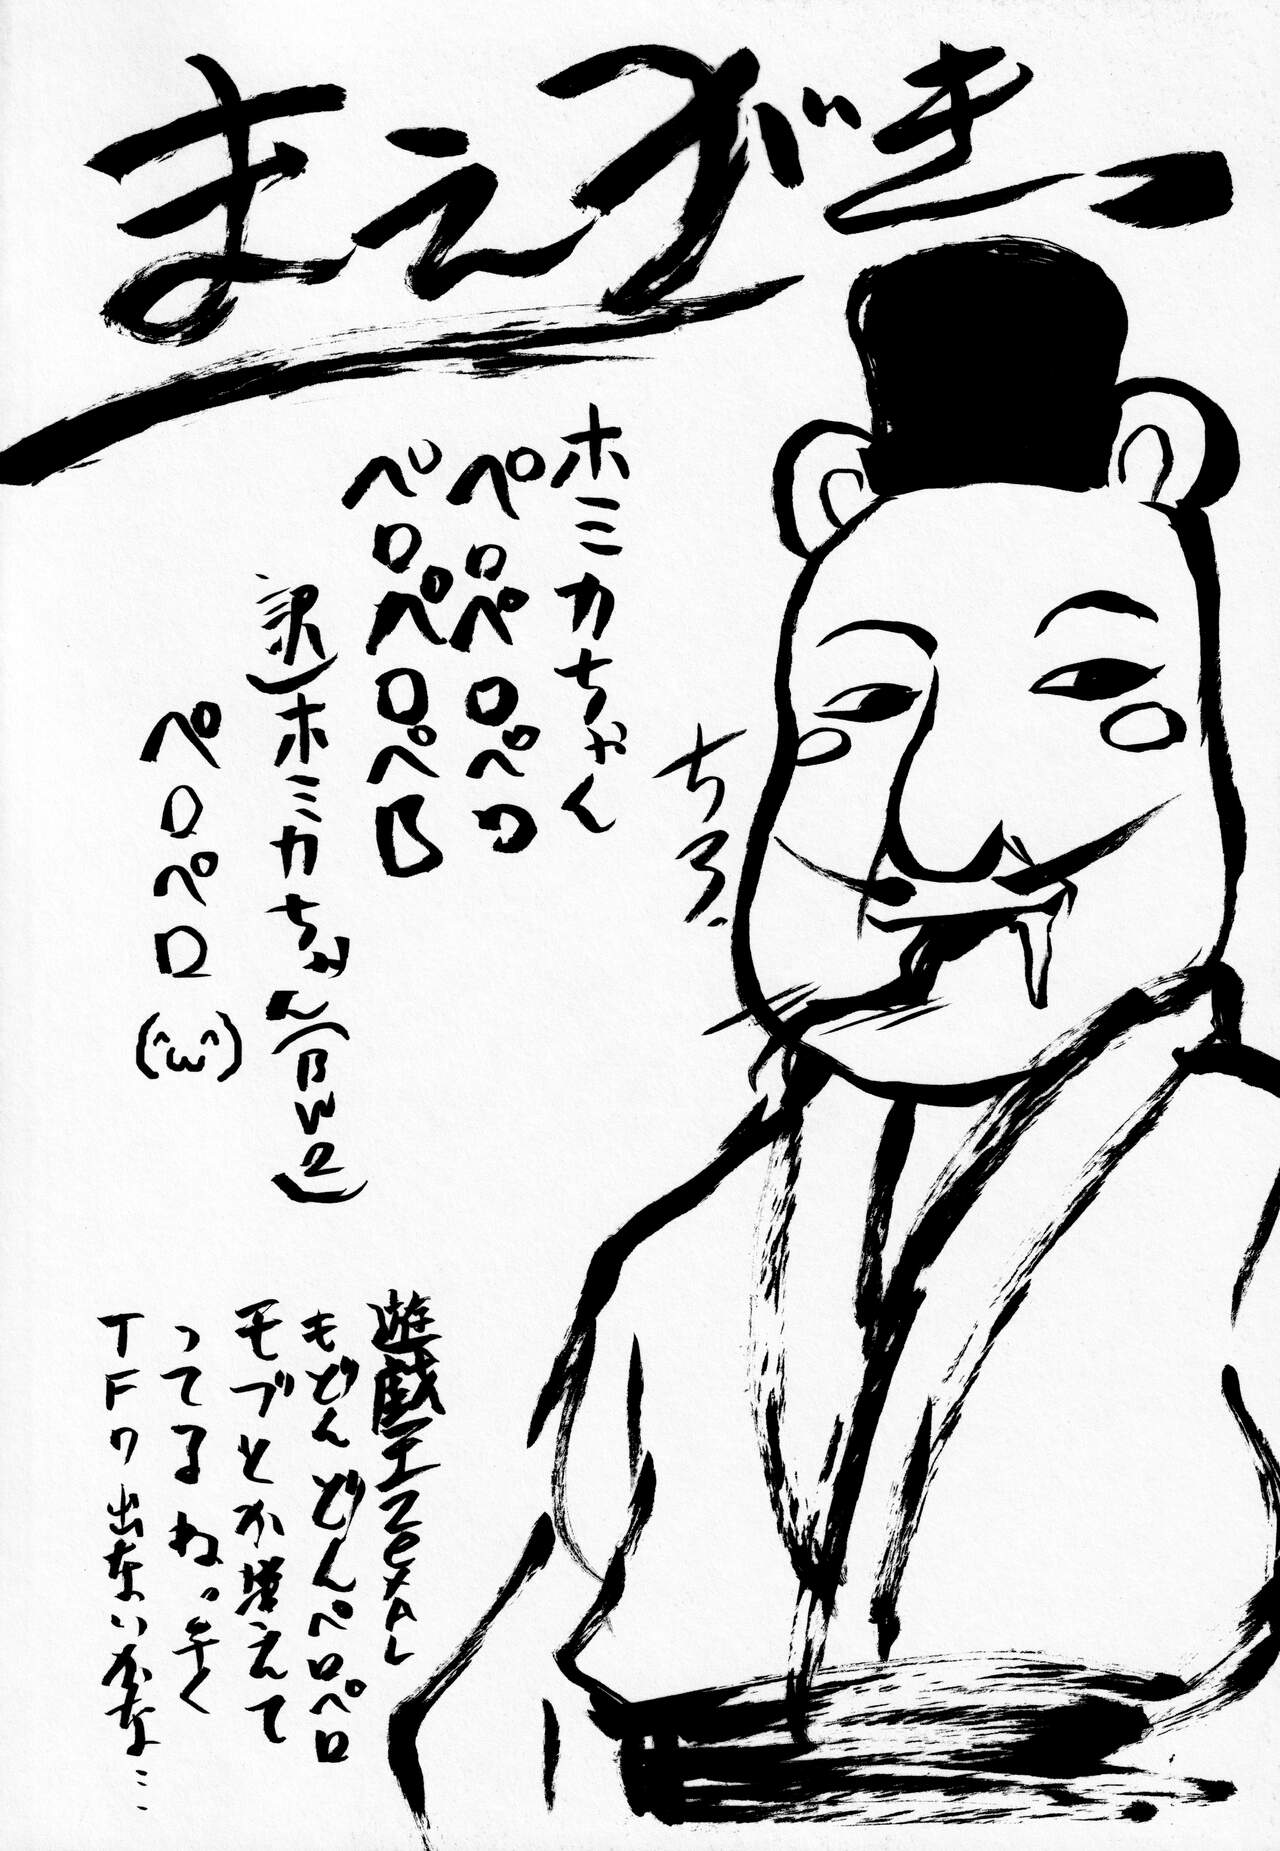 まえがきっ
ホミカちゃん
ペロペロペロ
ペロペロペロ
訳)ホミカちゃん(BW2)
ペロペロ(^ω^)
ちろ
遊戯王ZeXAL
もどんどんペロペロ
モブとか増えて
ってるねっ早く
TFワ出ないかな…